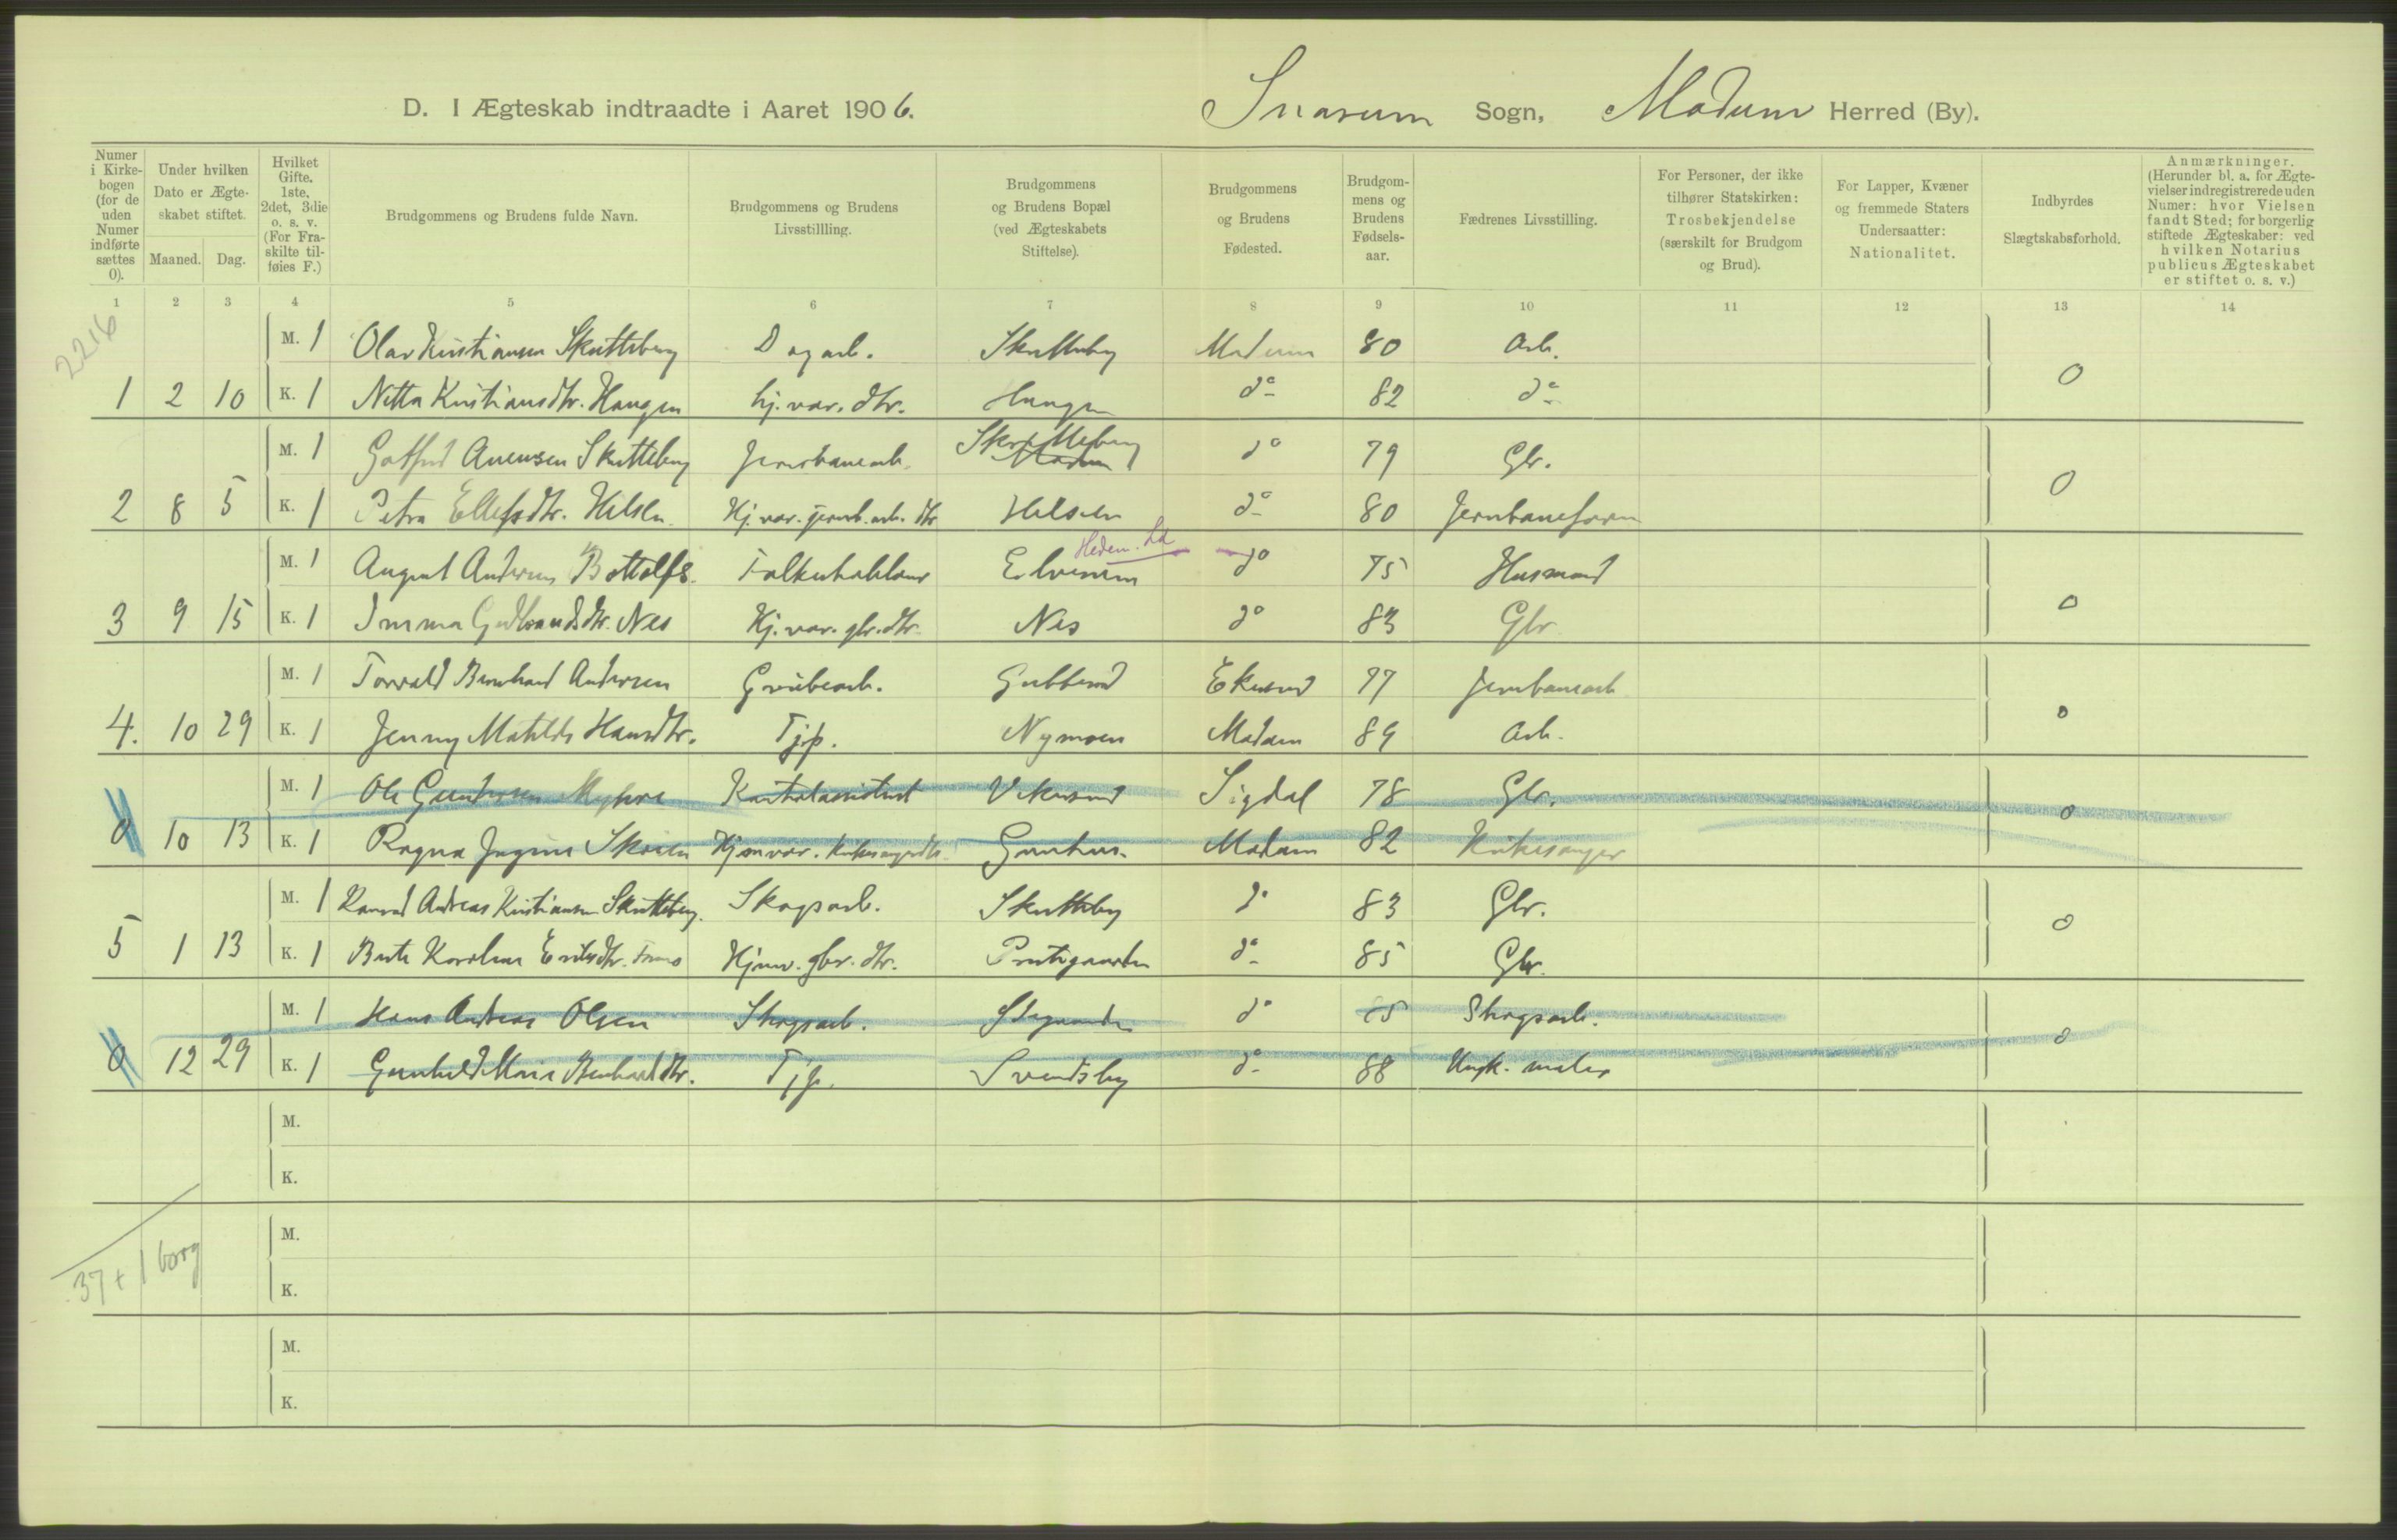 D. I Ægteskab indtraadte i Aaret 1906. Snarum Sogn, Modum Herred (By).
Numer i Kirkebogen (for de uden Numer indførte sættes 0).
Under hvilken Dato er Ægteskabet stiftet.
Maaned. Dag.
Hvilket Gifte. 1ste, 2det, 3die o. s. v. (For Fraskilte tilføies F.)
Brudgommens og Brudens fulde Navn.
Brudgommens og Brudens Livsstillling.
Brudgommens og Brudens Bopæl (ved Ægteskabets Stiftelse).
Brudgommens og Brudens Fødested.
Brudgommens og Brudens Fødselsaar.
Fædrenes Livsstilling.
For Personer, der ikke tilhører Statskirken: Trosbekjendelse (særskilt for Brudgom og Brud).
For Lapper, Kvæner og fremmede Staters Undersaatter: Nationalitet.
Indbyrdes Slægtskabsforhold.
Anmærkninger. (Herunder bl. a. for Ægtevielser indregistrerede uden Numer: hvor Vielsen fandt Sted; for borgerlig stiftede Ægteskaber: ved hvilken Notarius publicus Ægteskabet er stiftet o. s. v.)
1 2 3 4 5 6 7 8 9 10 11 12 13 14
2216
M. 1 Olav Kristiansen Skutteberg Dagarb. Skutteby Modum 80 Arb.
1 2 10 K. 1 Netta Kristiansdtr. Haugen hj. var. dtr. Haugen do 82 do 0
M. 1 Gotfred Anensen Skutteberg Jernbanearb. Skutteberg Modum do 79 Gbr.
2 8 5 K. 1 Petra Ellefsdtr. Helsen Hj. var. jernb. arb. dtr Helsen do 80 Jernbaneform 0
Hedem.
M. 1 August Andersen Bottolfs. Folkehøi Elverum do 75 Husmand
3 9 15 K. 1 Imma Gudbrandsdtr. Nes Hj. var. gbr. dtr. Nes do 83 Gbr. 0
M. 1 Torvald Bernhard Andersen Grubearb. Gubberud Ekersund 77 Jernbanearb
4. 10 29 K. 1 Jenny Matilde Hansdtr. Tjp. Nymoen Modum 84 Arb. 0
M. 1 Ole Gundersen Myhre Vikersund Sigdal 78 Gbr.
0 10 13 K. 1 Ragna Skoien Hjmvar. Kirkesangerdtr. Modum 82 Kirkesanger 0
M. 1 Konrad Andreas Kristiansen Skutteberg. Skogsarb. Skutteby do 83 Gbr.
5 1 13 K. 1 Berte Karoline Eriksdtr. Hjmv. gbr. dtr. Prestegaarden do 85 Gbr. 0
M. 1 Hans Andreas Olsen Skogsarb. do 85 Skogsarb.
0 12 29 K. 1 Gunhild Marie Bernhardtdtr. Tjp. Svendsby do 88 Ungk. maler 0
M.
K.
M.
37 + 1 borg
K.
M.
K.